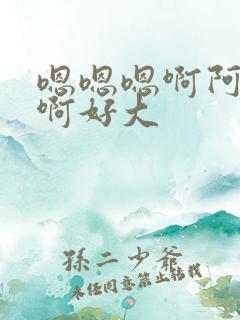 嗯嗯嗯啊阿
啊好大
孫二少爷
未经同意禁止转载